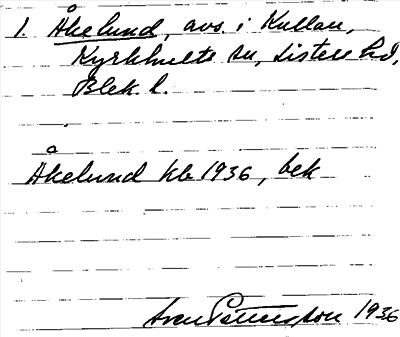 1. Åkelund, avs. i Kullan,
Kyrkhults sn, Listers hd,
Blek. l.
Åkelund kb 1936, bek
Sven Pettersson 1936